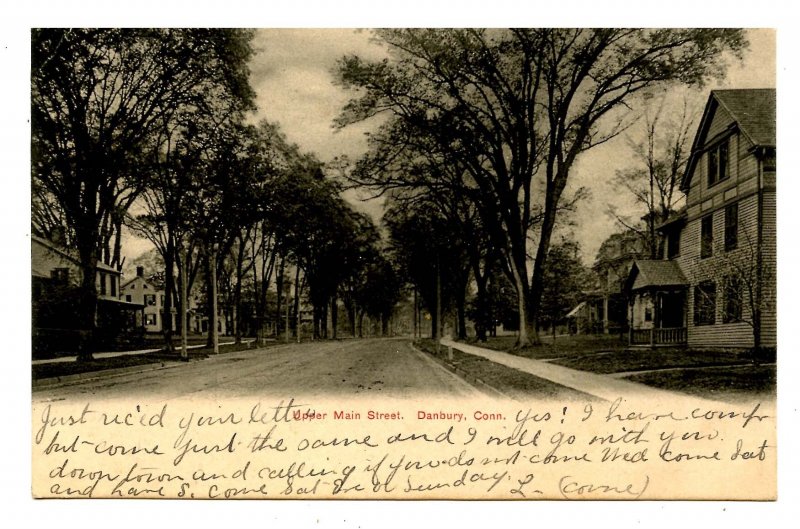 Upper Main Street. Danbury, Conn.
Just rec'd your letter yes! I have comp
but come just the same and I will go with you
down town and calling if you do not come Wed come Sat
and have S. come Sat Eve or Sunday L— (come)